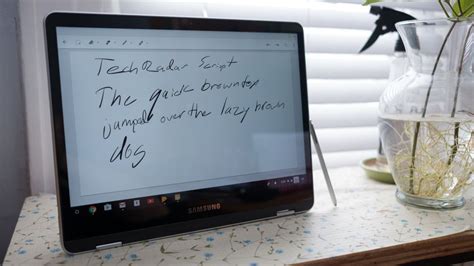 TechRadar Script
The quick brown fox
jumped over the lazy brown
dog
SAMSUNG